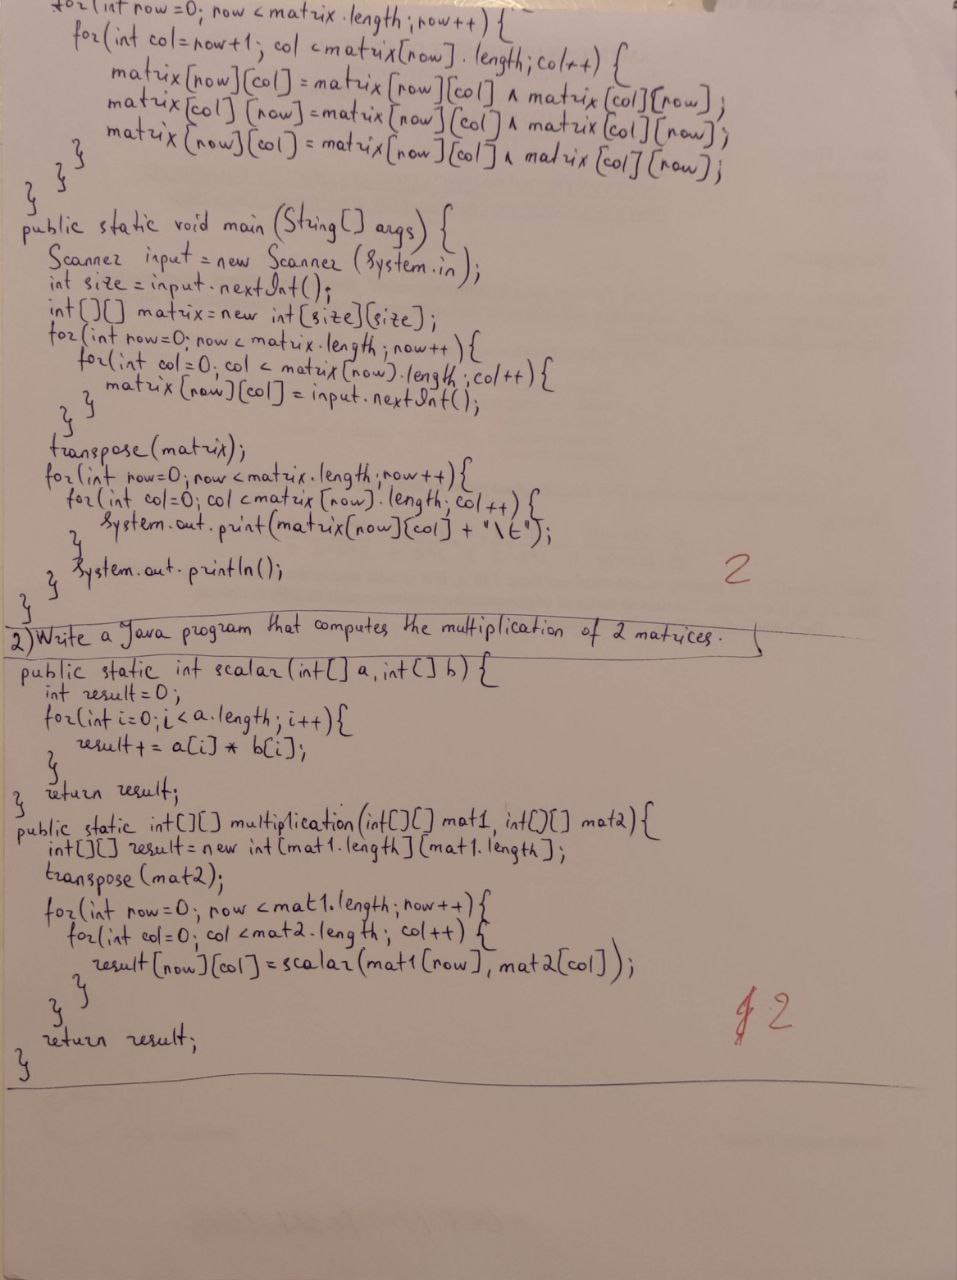 for(int row=0; row<matrix.length; row++) {
for(int col=row+1; col<matrix[row].length; col++) {
matrix[row][col] = matrix[row][col] ^ matrix[col][row];
matrix[col][row] = matrix[row][col] ^ matrix[col][row];
matrix[row][col] = matrix[row][col] ^ matrix[col][row];
}
}
}
public static void main (String[] args) {
Scanner input = new Scanner (System.in);
int size = input.nextInt();
int[][] matrix = new int[size][size];
for(int row=0; row<matrix.length; row++){
for(int col=0; col<matrix[row].length; col++){
matrix[row][col] = input.nextInt();
}
}
transpose(matrix);
for(int row=0; row<matrix.length; row++){
for(int col=0; col<matrix[row].length; col++){
System.out.print(matrix[row][col] + "\t");
}
System.out.println();
}
}
2
2) Write a Java program that computes the multiplication of 2 matrices.
public static int scalar (int[] a, int[] b) {
int result=0;
for(int i=0; i<a.length; i++){
result += a[i] * b[i];
}
return result;
}
public static int[][] multiplication(int[][] mat1, int[][] mat2){
int[][] result = new int[mat1.length][mat1.length];
transpose(mat2);
for(int row=0; row<mat1.length; row++){
for(int col=0; col<mat2.length; col++) {
result[row][col] = scalar(mat1[row], mat2[col]);
}
}
2
return result;
}